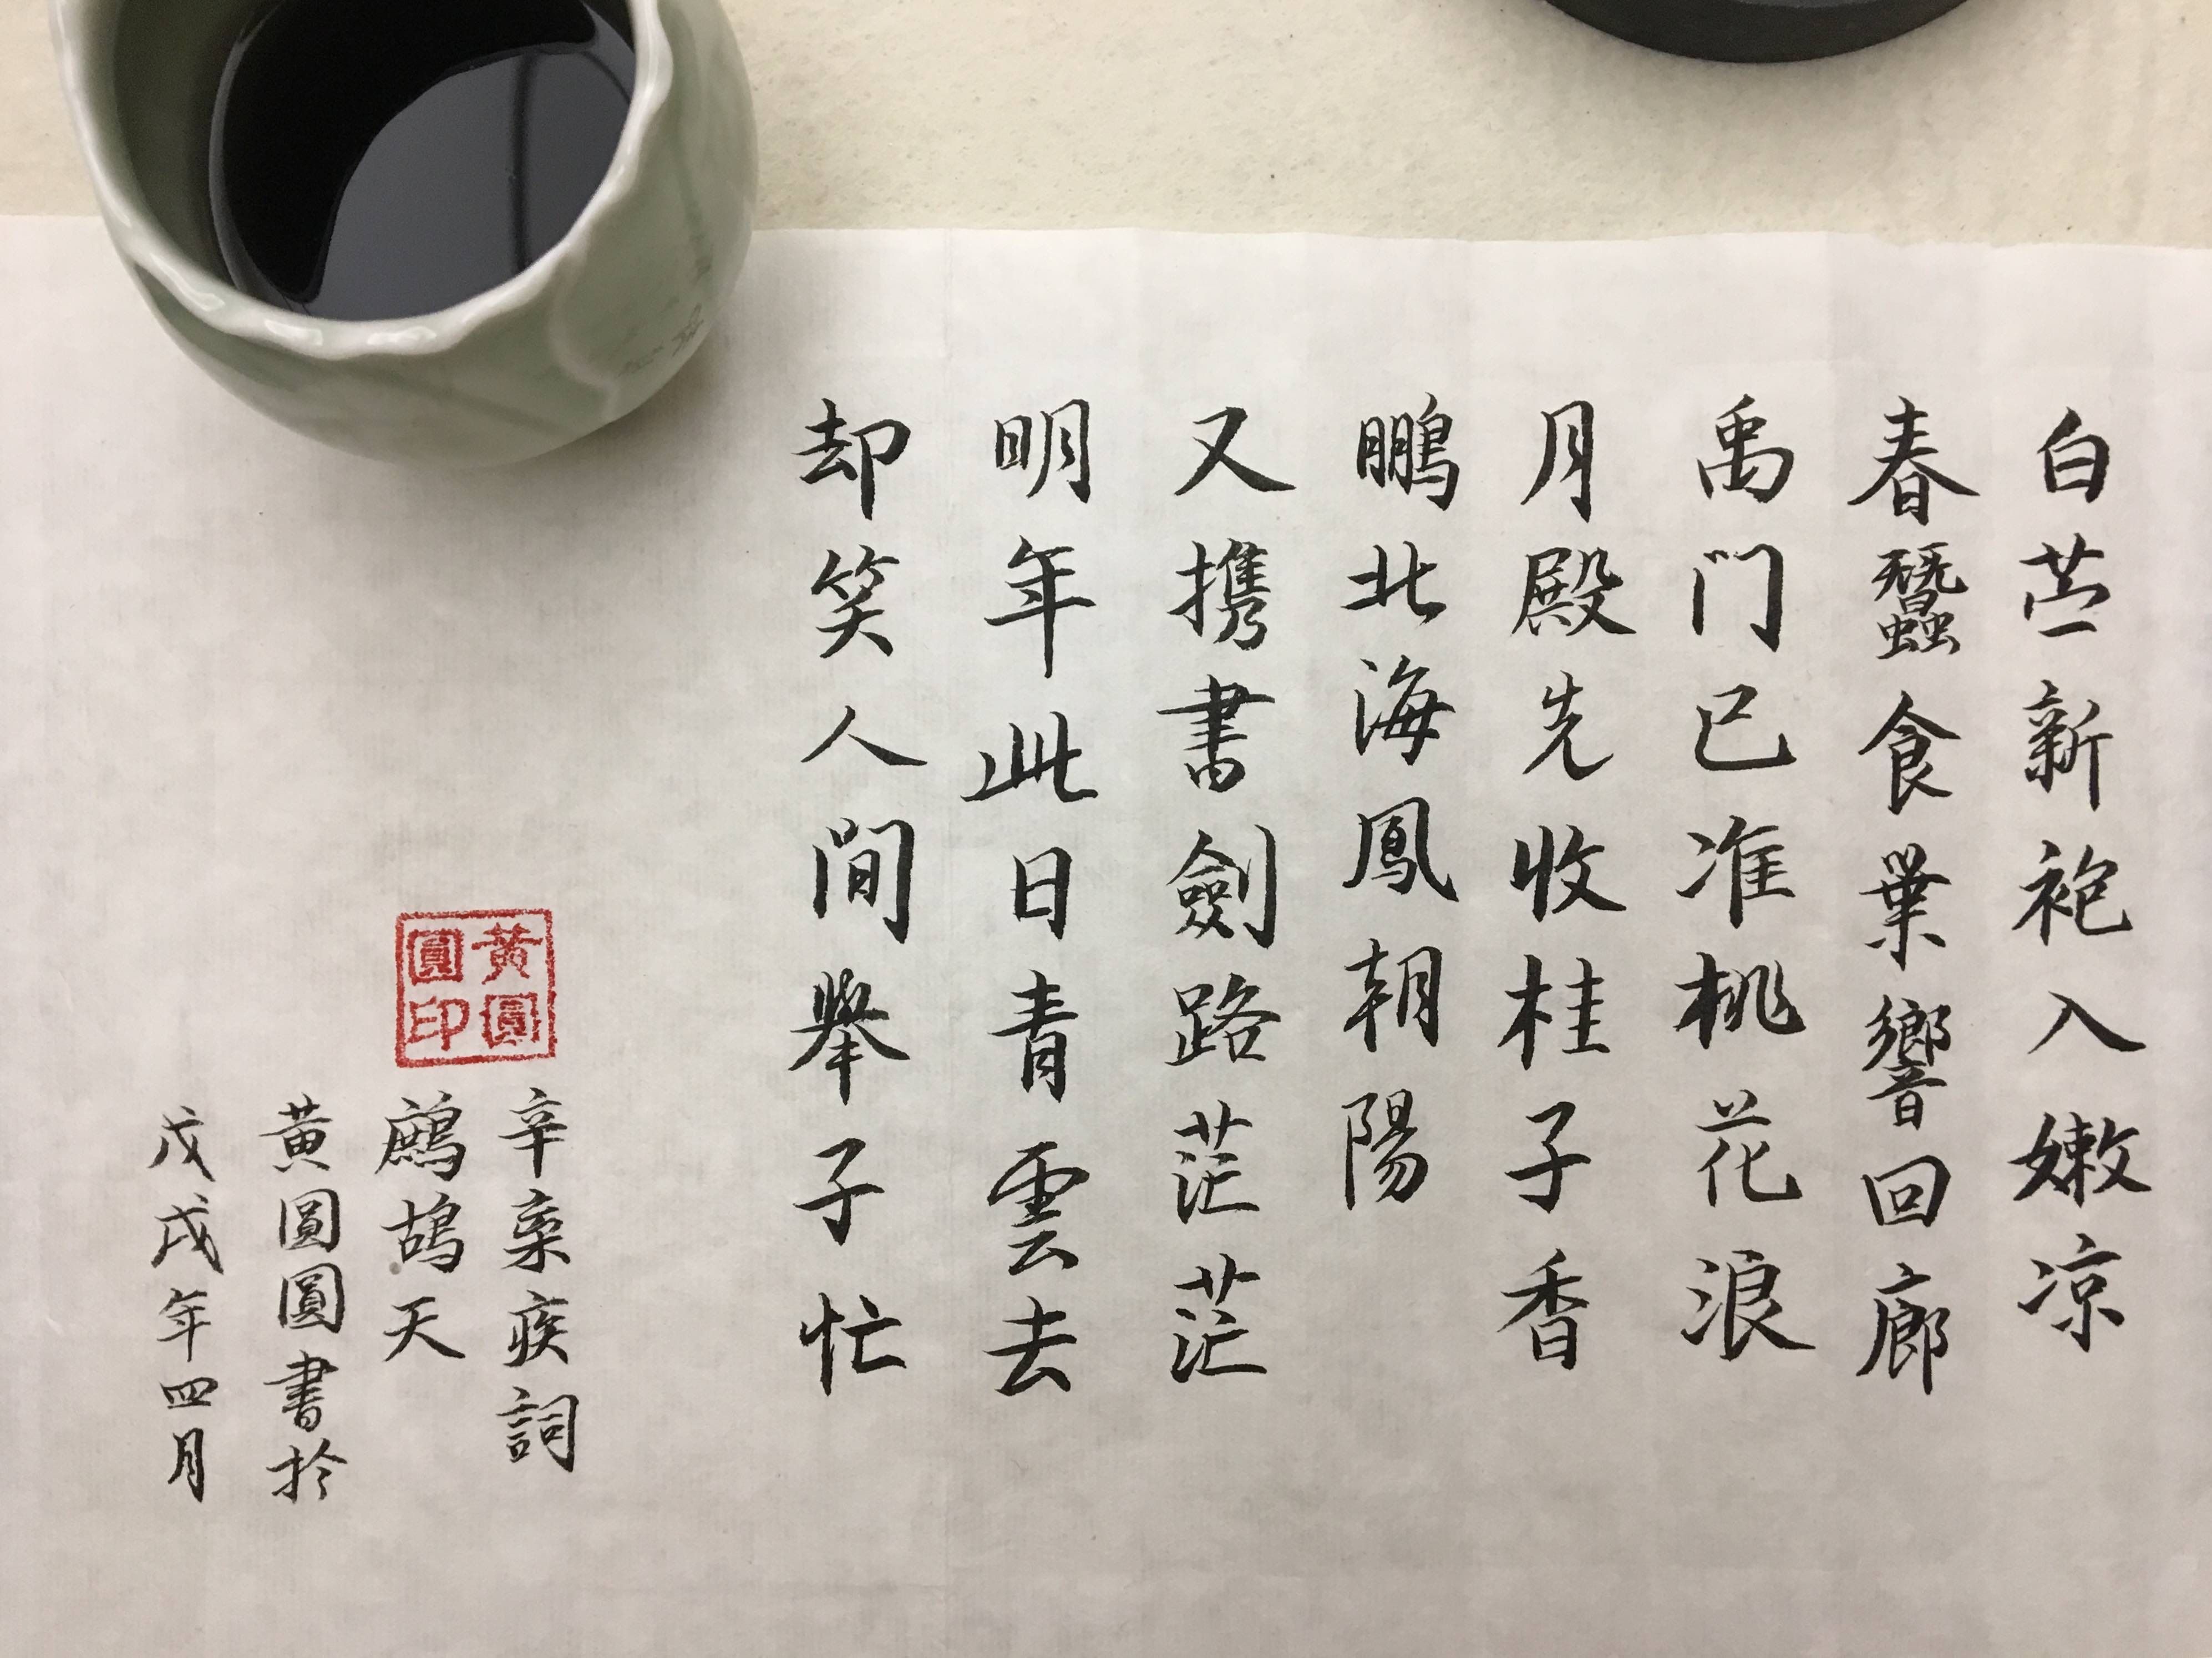 白苎新袍入嫩凉
春蠶食葉響回廊
禹门已准桃花浪
月殿先收桂子香
鵬北海鳳朝陽
又携書劍路茫茫
明年此日青雲去
却笑人間舉子忙
辛棄疾詞
鷓鴣天
黃圓圓書於
戊戌年四月
黃圓
圓印